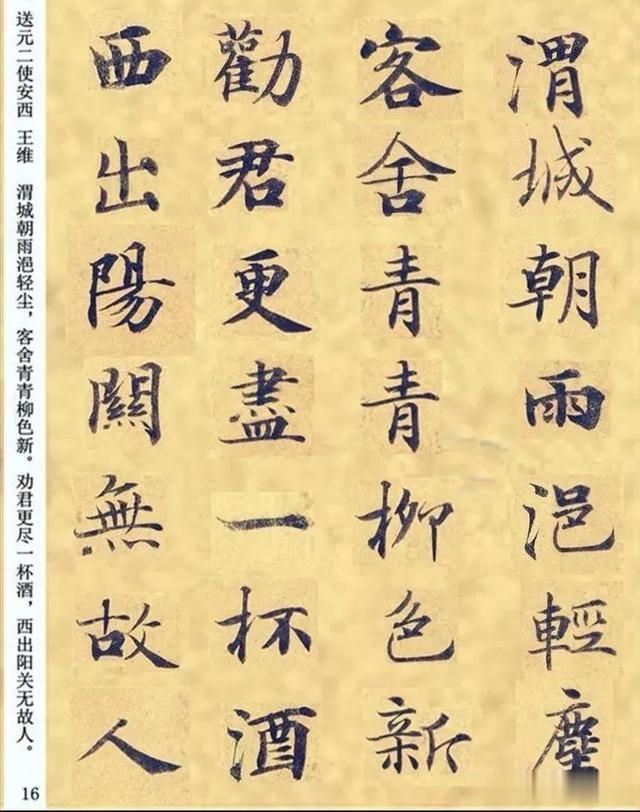 渭城朝雨浥輕塵
客舍青青柳色新
勸君更盡一杯酒
西出陽關無故人
送元二使安西 王维 渭城朝雨浥轻尘，客舍青青柳色新。劝君更尽一杯酒，西出阳关无故人。
16